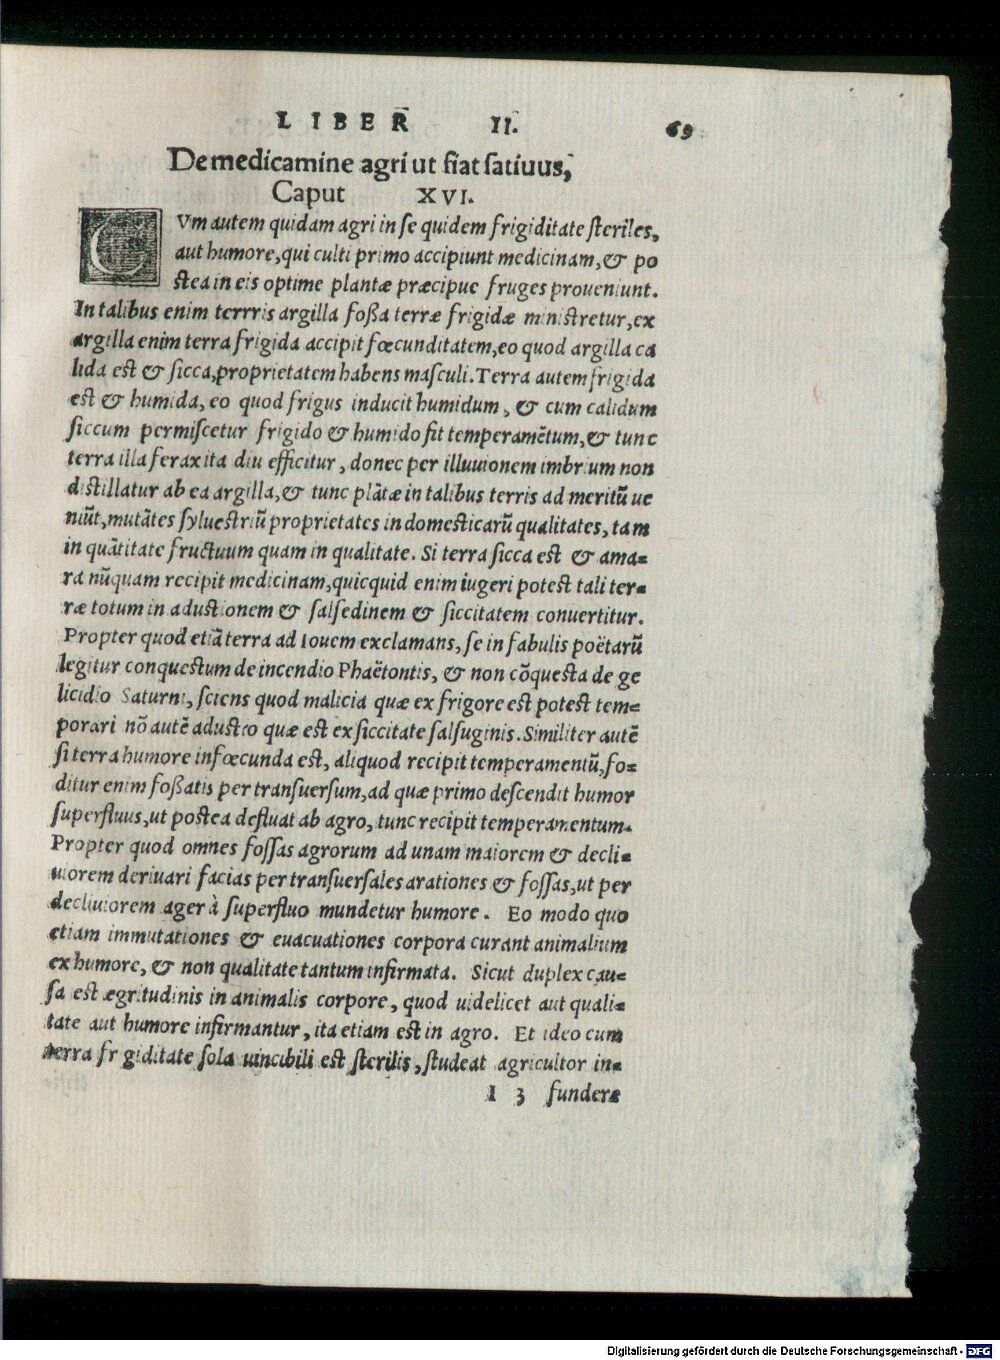 LIBER II. 69
De medicamine agri ut fiat ſatiuus,
Caput XVI.
CVm autem quidam agri in ſe quidem frigiditate ſteriles,
aut humore, qui culti primo accipiunt medicinam, & po
ſtea in eis optime plantæ præcipue fruges proueniunt.
In talibus enim terrris argilla foßa terræ frigidæ miniſtretur, ex
argilla enim terra frigida accipit fœcunditatem, eo quod argilla ca
lida est & ſicca, proprietatem habens maſculi. Terra autem frigida
est & humida, eo quod frigus inducit humidum, & cum calidum
ſiccum permiſcetur frigido & humido fit temperamẽtum, & tunc
terra illa ferax ita diu efficitur, donec per illuuionem imbrium non
diſtillatur ab ea argilla, & tunc plãtæ in talibus terris ad meritũ ue
niũt, mutãtes ſylueſtriũ proprietates in domeſticarũ qualitates, tam
in quãtitate fructuum quam in qualitate. Si terra ſicca est & ama=
ra nũquam recipit medicinam, quicquid enim iugeri potest tali ter=
ræ totum in adustionem & ſalſedinem & ſiccitatem conuertitur.
Propter quod etiã terra ad Iouem exclamans, ſe in fabulis poëtarũ
legitur conquestum de incendio Phaëtontis, & non cõquesta de ge
licidio Saturni, ſciens quod malicia quæ ex frigore est potest tem=
porari nõ autẽ adustio quæ est ex ſiccitate ſalſuginis. Similiter autẽ
ſi terra humore infœcunda est, aliquod recipit temperamentũ, fo=
ditur enim foßatis per tranſuerſum, ad quæ primo deſcendit humor
ſuperfluus, ut poſtea defluat ab agro, tunc recipit temperamentum.
Propter quod omnes foſſas agrorum ad unam maiorem & decli=
uiorem deriuari facias per tranſuerſales arationes & foſſas, ut per
decliuiorem ager à ſuperfluo mundetur humore. Eo modo quo
etiam immutationes & euacuationes corpora curant animalium
ex humore, & non qualitate tantum infirmata. Sicut duplex cau=
ſa est ægritudinis in animalis corpore, quod uidelicet aut quali=
tate aut humore infirmantur, ita etiam est in agro. Et ideo cum
terra frigiditate ſola uincibili est ſterilis, ſtudeat agricultor in=
I 3 fundere
Digitalisierung gefördert durch die Deutsche Forschungsgemeinschaft - DFG